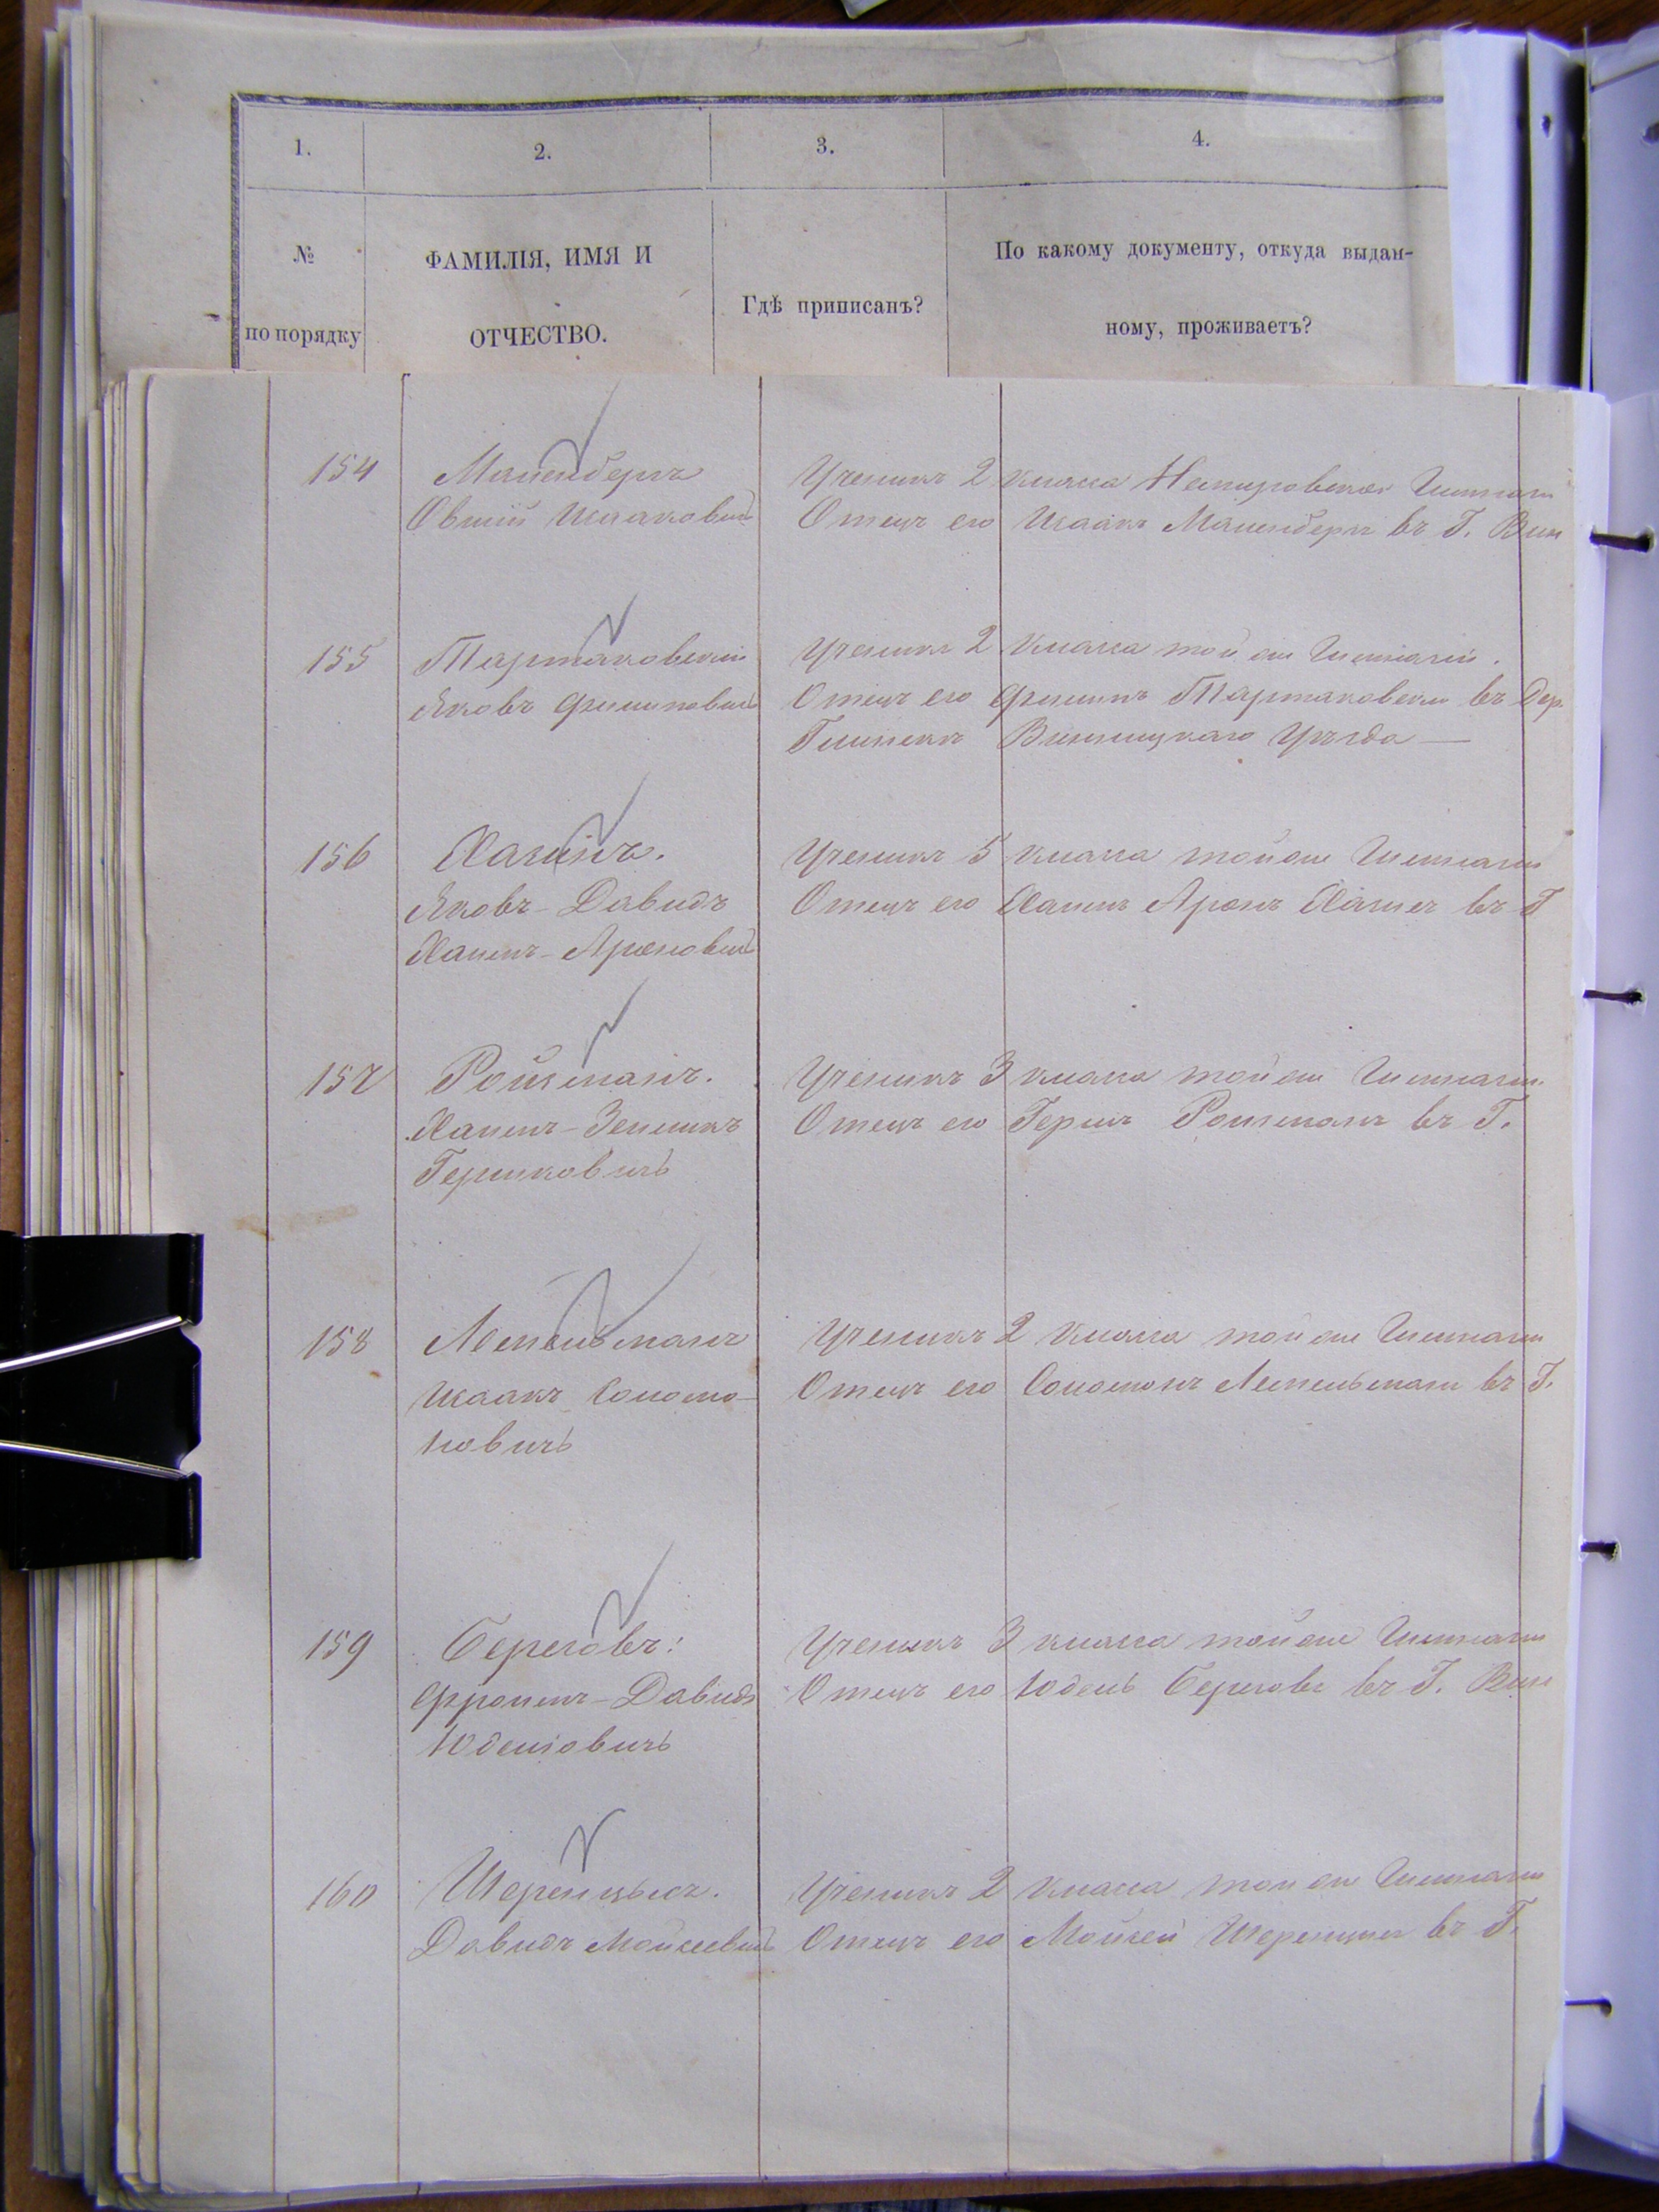 1.
2.
3.
4.
№
по порядку
ФАМИЛІЯ, ИМЯ И
ОТЧЕСТВО.
Гдѣ приписанъ?
По какому документу, откуда выдан-
ному, проживаетъ?
154
Маленбергъ
Овшій Исаакович
Ученикъ 2 класса Немировской Гимназ
Отецъ его Исаакъ Маленбергъ въ Г. Вин
155
Тартаковскій
Яковъ Филиповичъ
Ученикъ 2 класса той же Гимназіи.
Отецъ его Филипъ Тартаковски въ Дер.
Винницкаго Уѣзда —
156
Хагинъ.
Яковъ-Давидъ
Хаимъ-Ароновичъ
Ученикъ 5 класса той же Гимназіи
Отецъ его Хаимъ Аронъ въ Г
157
Ройзманъ.
Хаимъ-Зеликъ
Гершковичъ
Ученикъ 3 класса той же Гимназіи
Отецъ его Гершъ Ройзманъ въ Г.
158
Исаакъ Соломо-
новичъ
Ученикъ 2 класса той же Гимназіи
Отецъ его Соломонъ въ Г.
159
Береговъ:
Фроимъ-Давидъ
Юделіовичъ
Ученикъ 3 класса той же Гимназіи
Отецъ его Юдель Береговъ въ Г. Вин
160
Шеренцысъ.
Давидъ Мойсеевичъ
Ученикъ 2 класса той же Гимназіи
Отецъ его Мойсей Шеренцис въ Г.